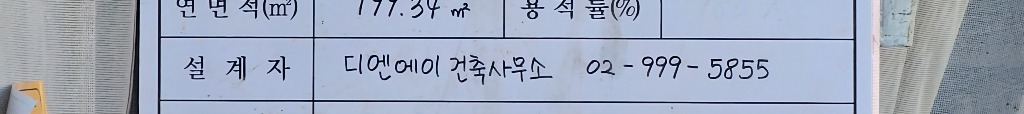 연 면 적(㎡) 177.34 ㎡ 용 적 률(%)
설 계 자 디엔에이 건축사무소 02-999-5855